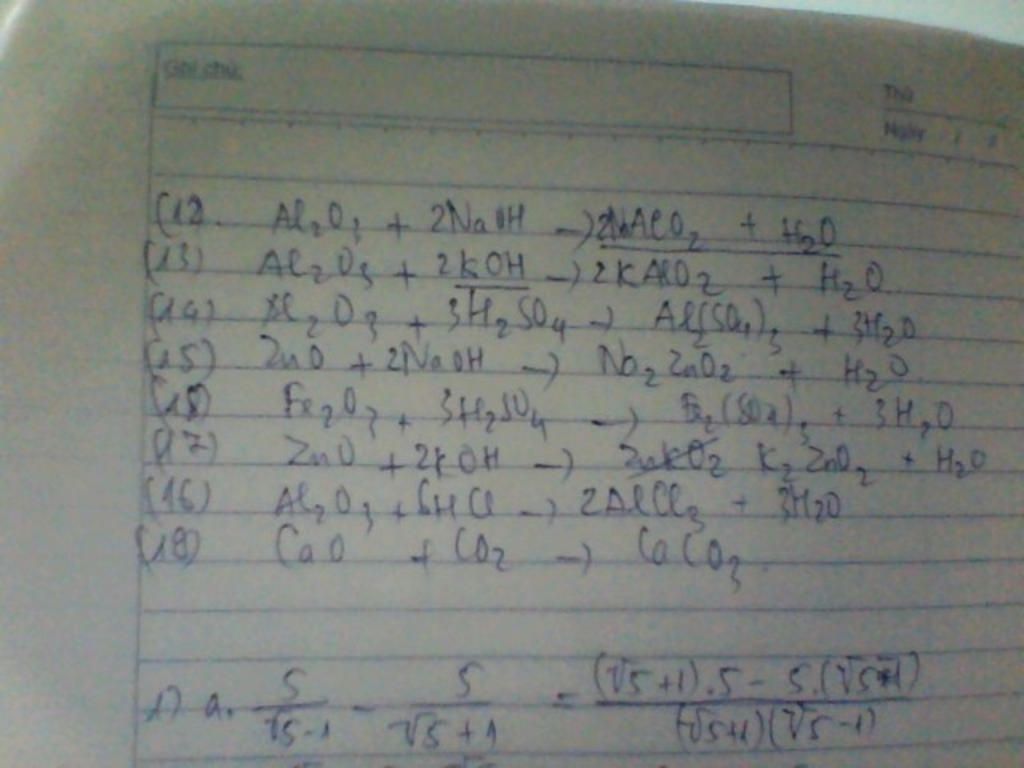 Ghi chú:
Thứ
Ngày / /
(12. Al₂O₃ + 2NaOH → 2NaAlO₂ + H₂O
(13) Al₂O₃ + 2KOH → 2KAlO₂ + H₂O
(14) Al₂O₃ + 3H₂SO₄ → Al₂(SO₄)₃ + 3H₂O
(15) ZnO + 2NaOH → Na₂ZnO₂ + H₂O
(18) Fe₂O₃ + 3H₂SO₄ → Fe₂(SO₄)₃ + 3H₂O
(17) ZnO + 2KOH → K₂ZnO₂ + H₂O
(16) Al₂O₃ + 6HCl → 2AlCl₃ + 3H₂O
(19) CaO + CO₂ → CaCO₃
1) a. 5/(√5-1) - 5/(√5+1) = ((√5+1).5 - 5.(√5-1))/((√5+1)(√5-1))